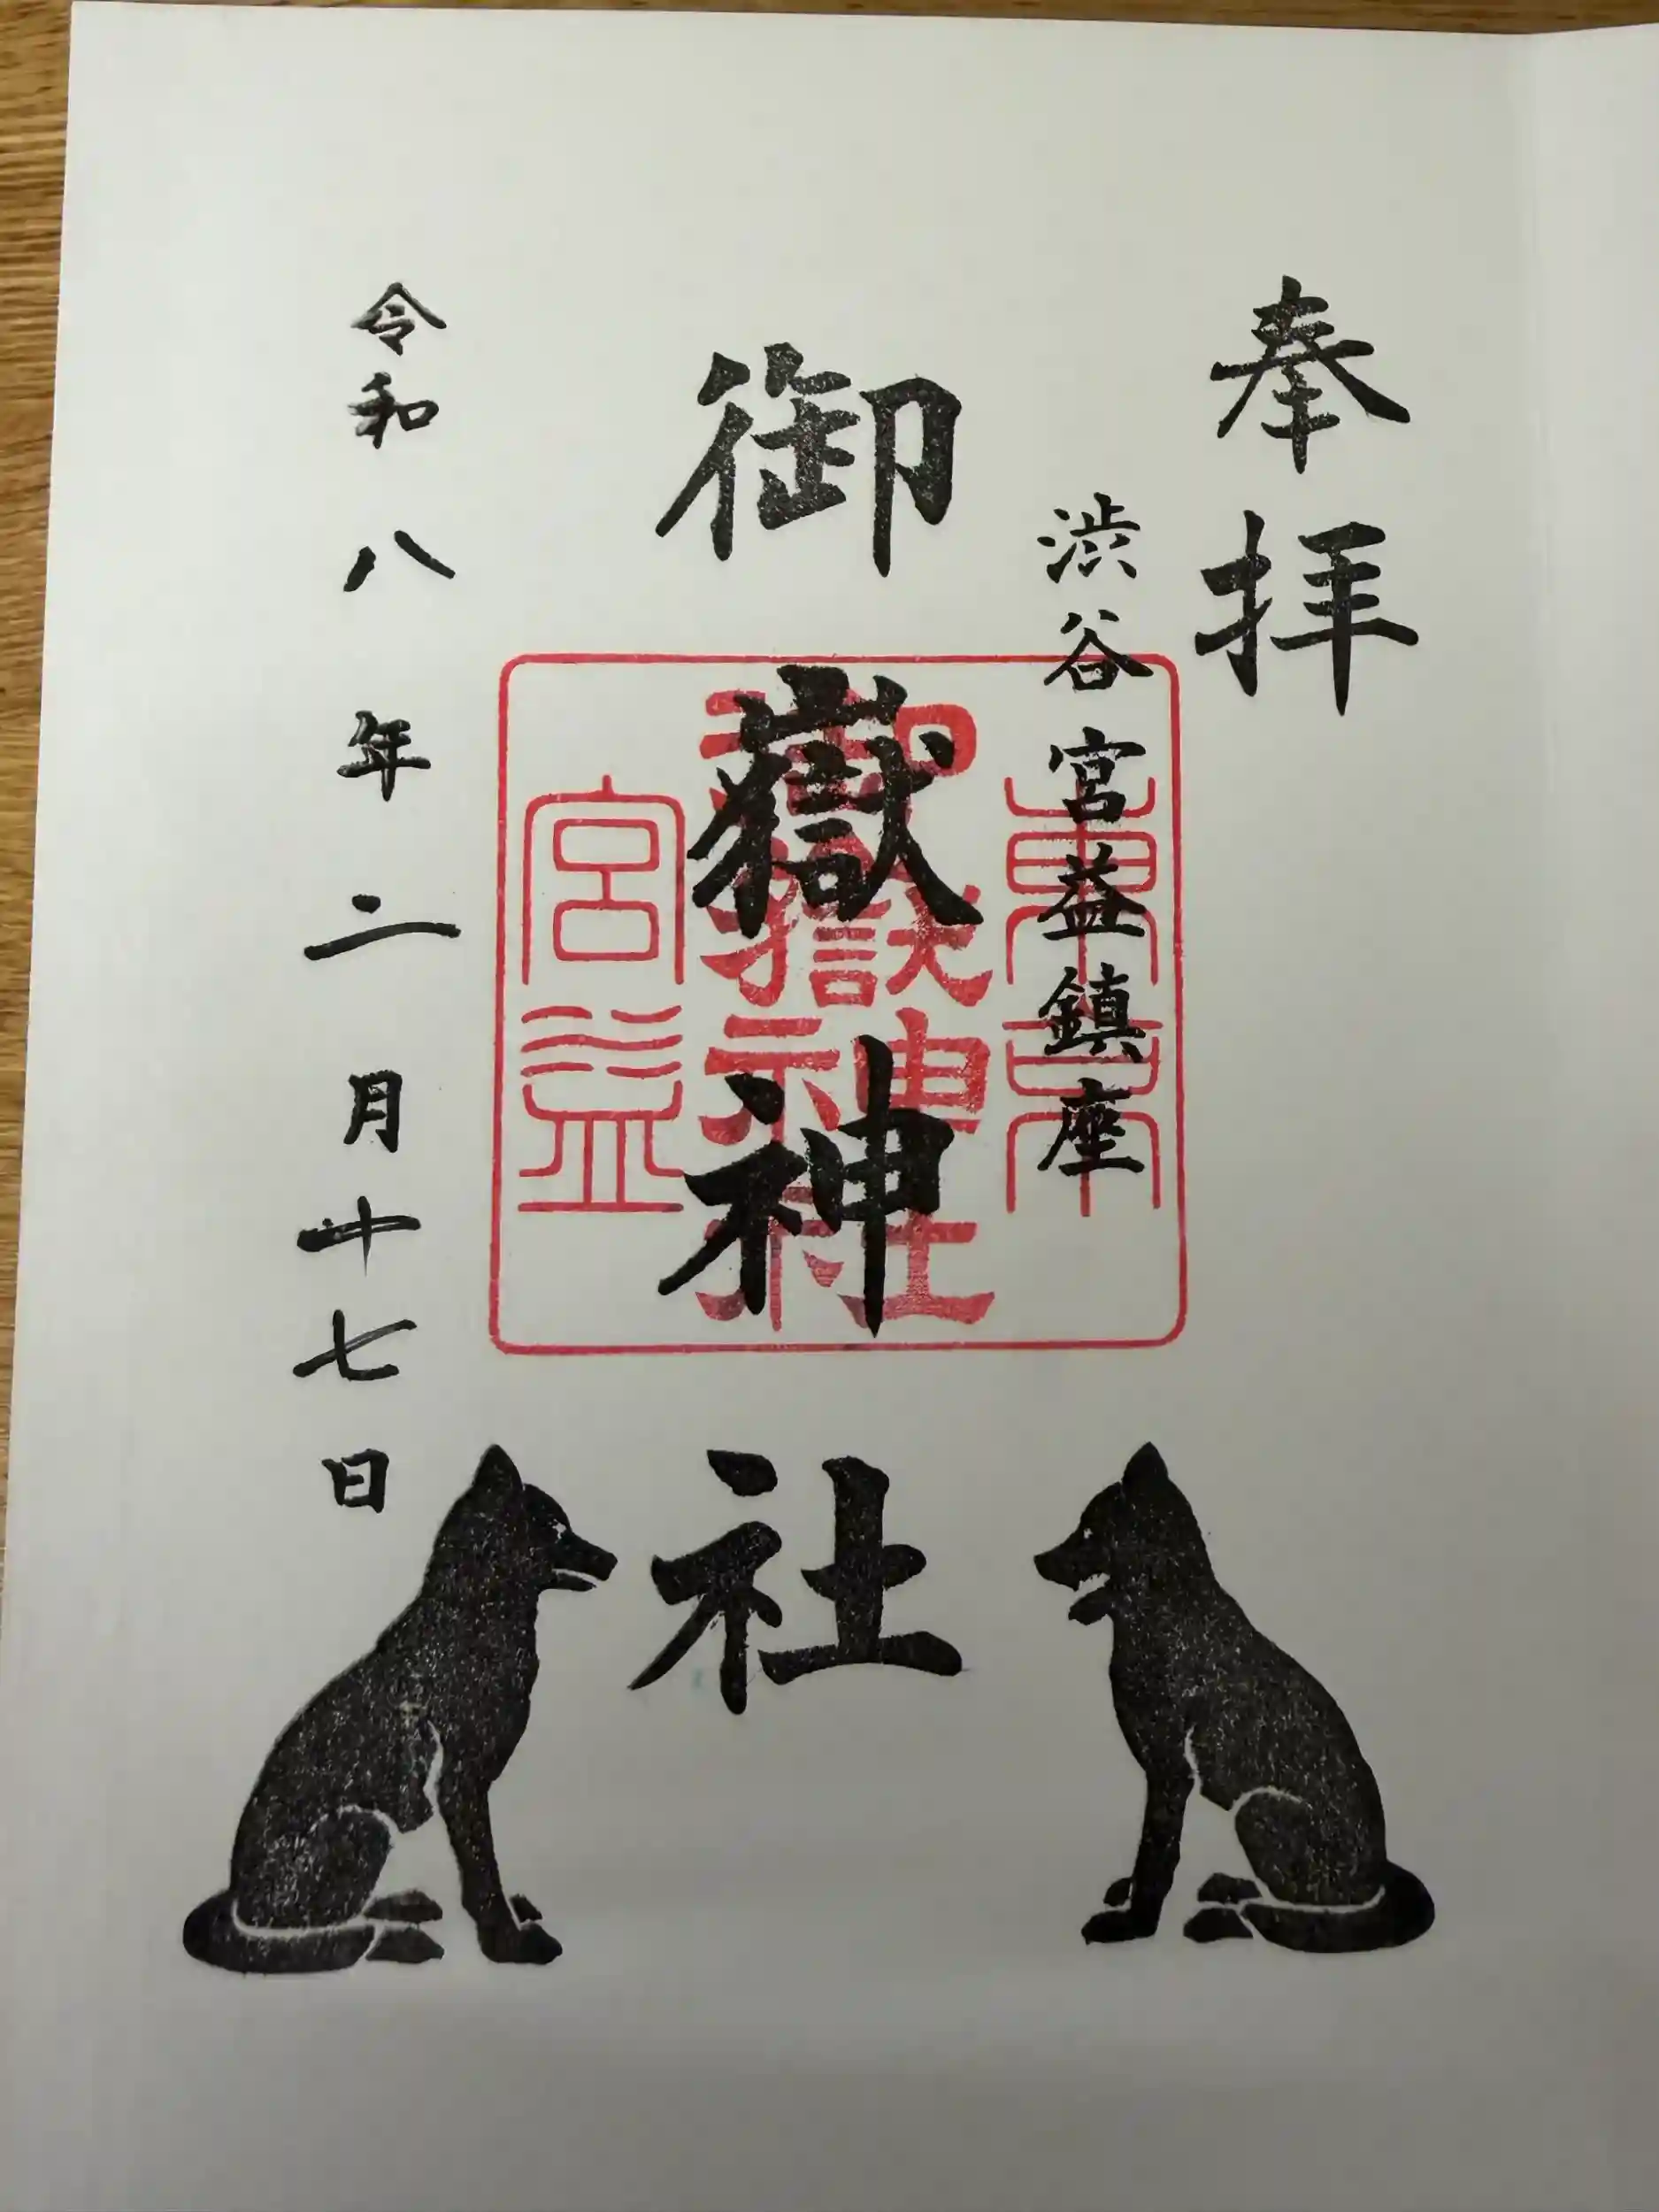 奉拝
渋谷宮益鎮座
御嶽神社
東京
御嶽神社
宮益
令和八年二月十七日